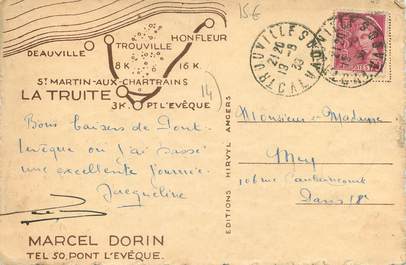 15€
HONFLEUR
TROUVILLE
DEAUVILLE
8 K.
16 K.
ST MARTIN-AUX-CHARTRAINS
LA TRUITE
3K.
PT L'EVÊQUE
14
Bons baisers de Pont-
l'évêque où j'ai passé
une excellente journée.
Jacqueline
MARCEL DORIN
TEL 50, PONT L'EVÊQUE.
EDITIONS HIRVYL ANGERS
TROUVILLE S
21 20
19 - 8
CALVADOS
Monsieur et Madame
Mey
106 rue Caulaincourt
Paris 18e